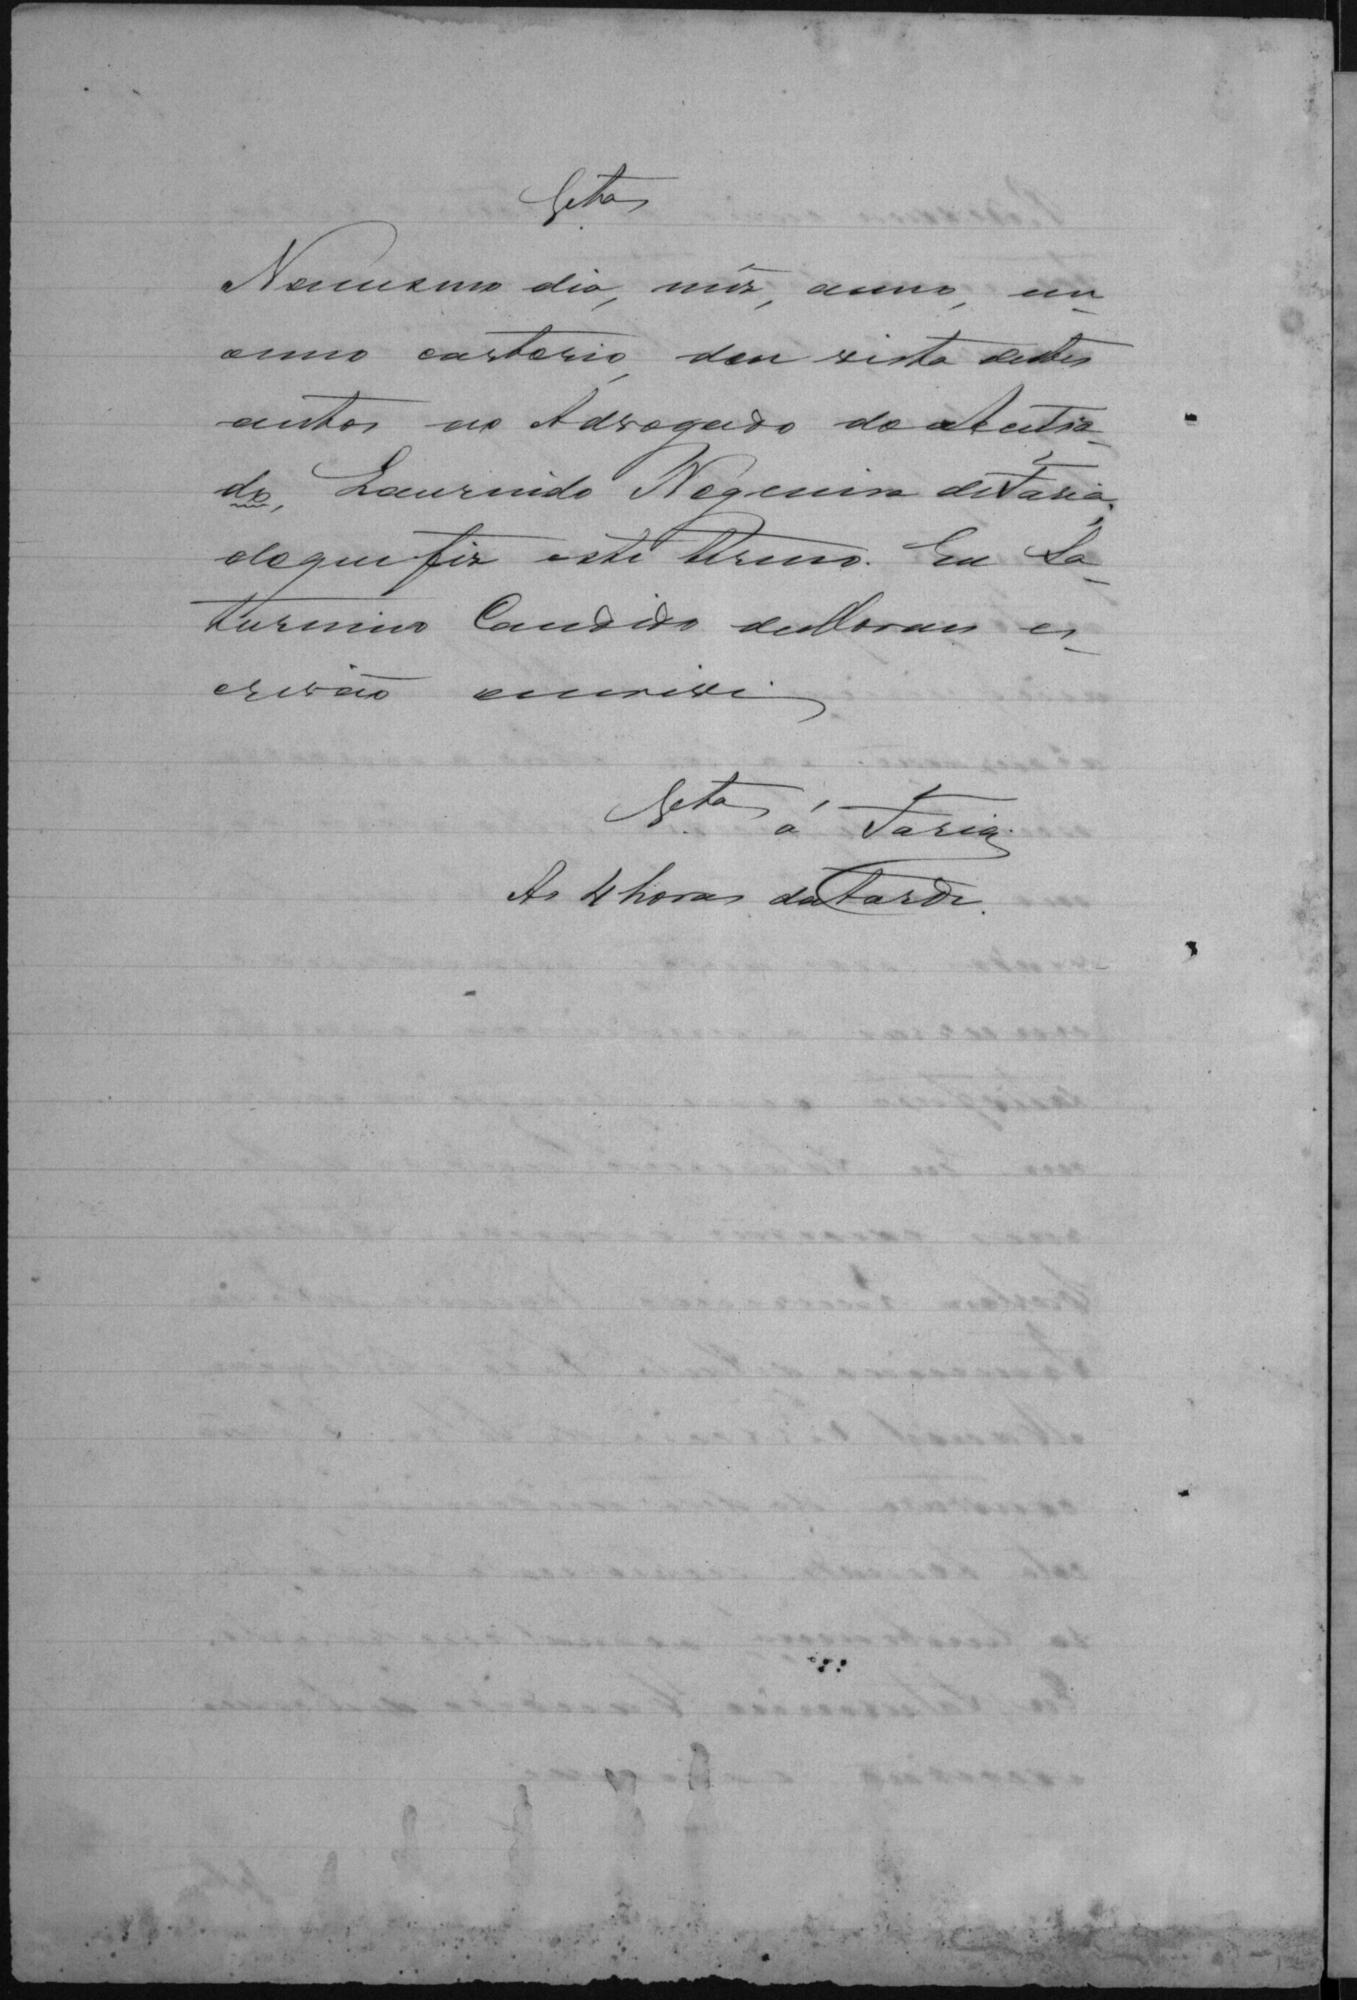 Vista
No mesmo dia, mêz, anno, em
meu cartorio, dou vista destes
autos ao Advogado do Autoa-
do, Laurindo Nogueira de Faria,
do que fiz este termo. Eu Sa-
turnino Candido de Moraes es-
crivão escrivi
Vista á Faria.
As 4 horas da tarde.